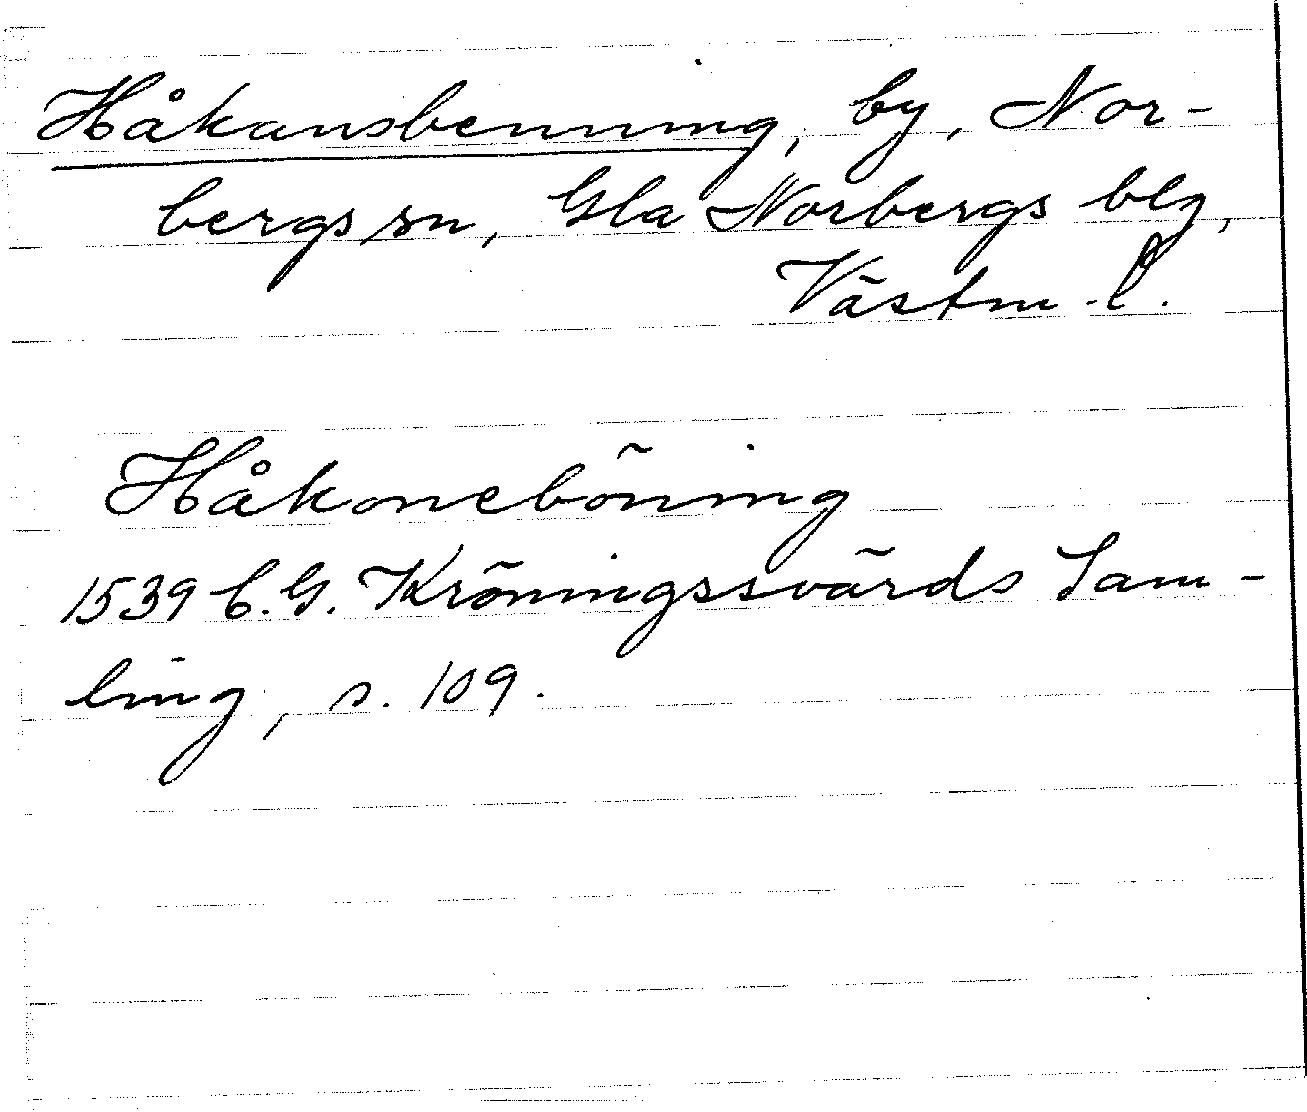 Håkansbenning, by, Nor-
bergs sn, Gla Norbergs blg,
Västm. l.
Håkoneböning
1539 C. G. Kröningssvärds Sam-
ling, s. 109.